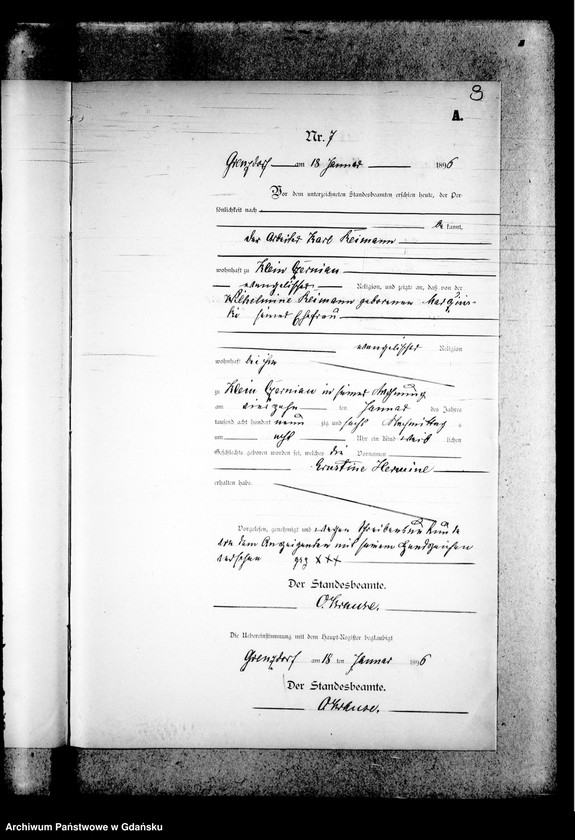 8
A.
Nr. 7
Grenzdorf am 18 Januar 1896
Vor dem unterzeichneten Standesbeamten erschien heute, der Per-
sönlichkeit nach
be kannt,
der Arbeiter Karl Reimann
wohnhaft zu Klein Czernian
evangelischer Religion, und zeigte an, daß von der
Wilhelmine Reimann geborenen
seiner Ehefrau
evangelischer Religion
wohnhaft bei ihm
zu Klein Czernian in seiner Wohnung
am vierzehn ten Januar des Jahres
tausend acht hundert neun zig und sechs Nachmittag s
um acht Uhr ein Kind weib lichen
Geschlechts geboren worden sei, welches die Vornamen
Ernstine Hermine
erhalten habe.
Vorgelesen, genehmigt und wegen Schreibensunkunde
von dem Anzeigenden mit seinem Handzeichen
versehen gez XXX
Der Standesbeamte.
O. Krause.
Die Uebereinstimmung mit dem Haupt-Register beglaubigt
Grenzdorf am 18 ten Januar 1896
Der Standesbeamte.
O. Krause.
Archiwum Państwowe w Gdańsku